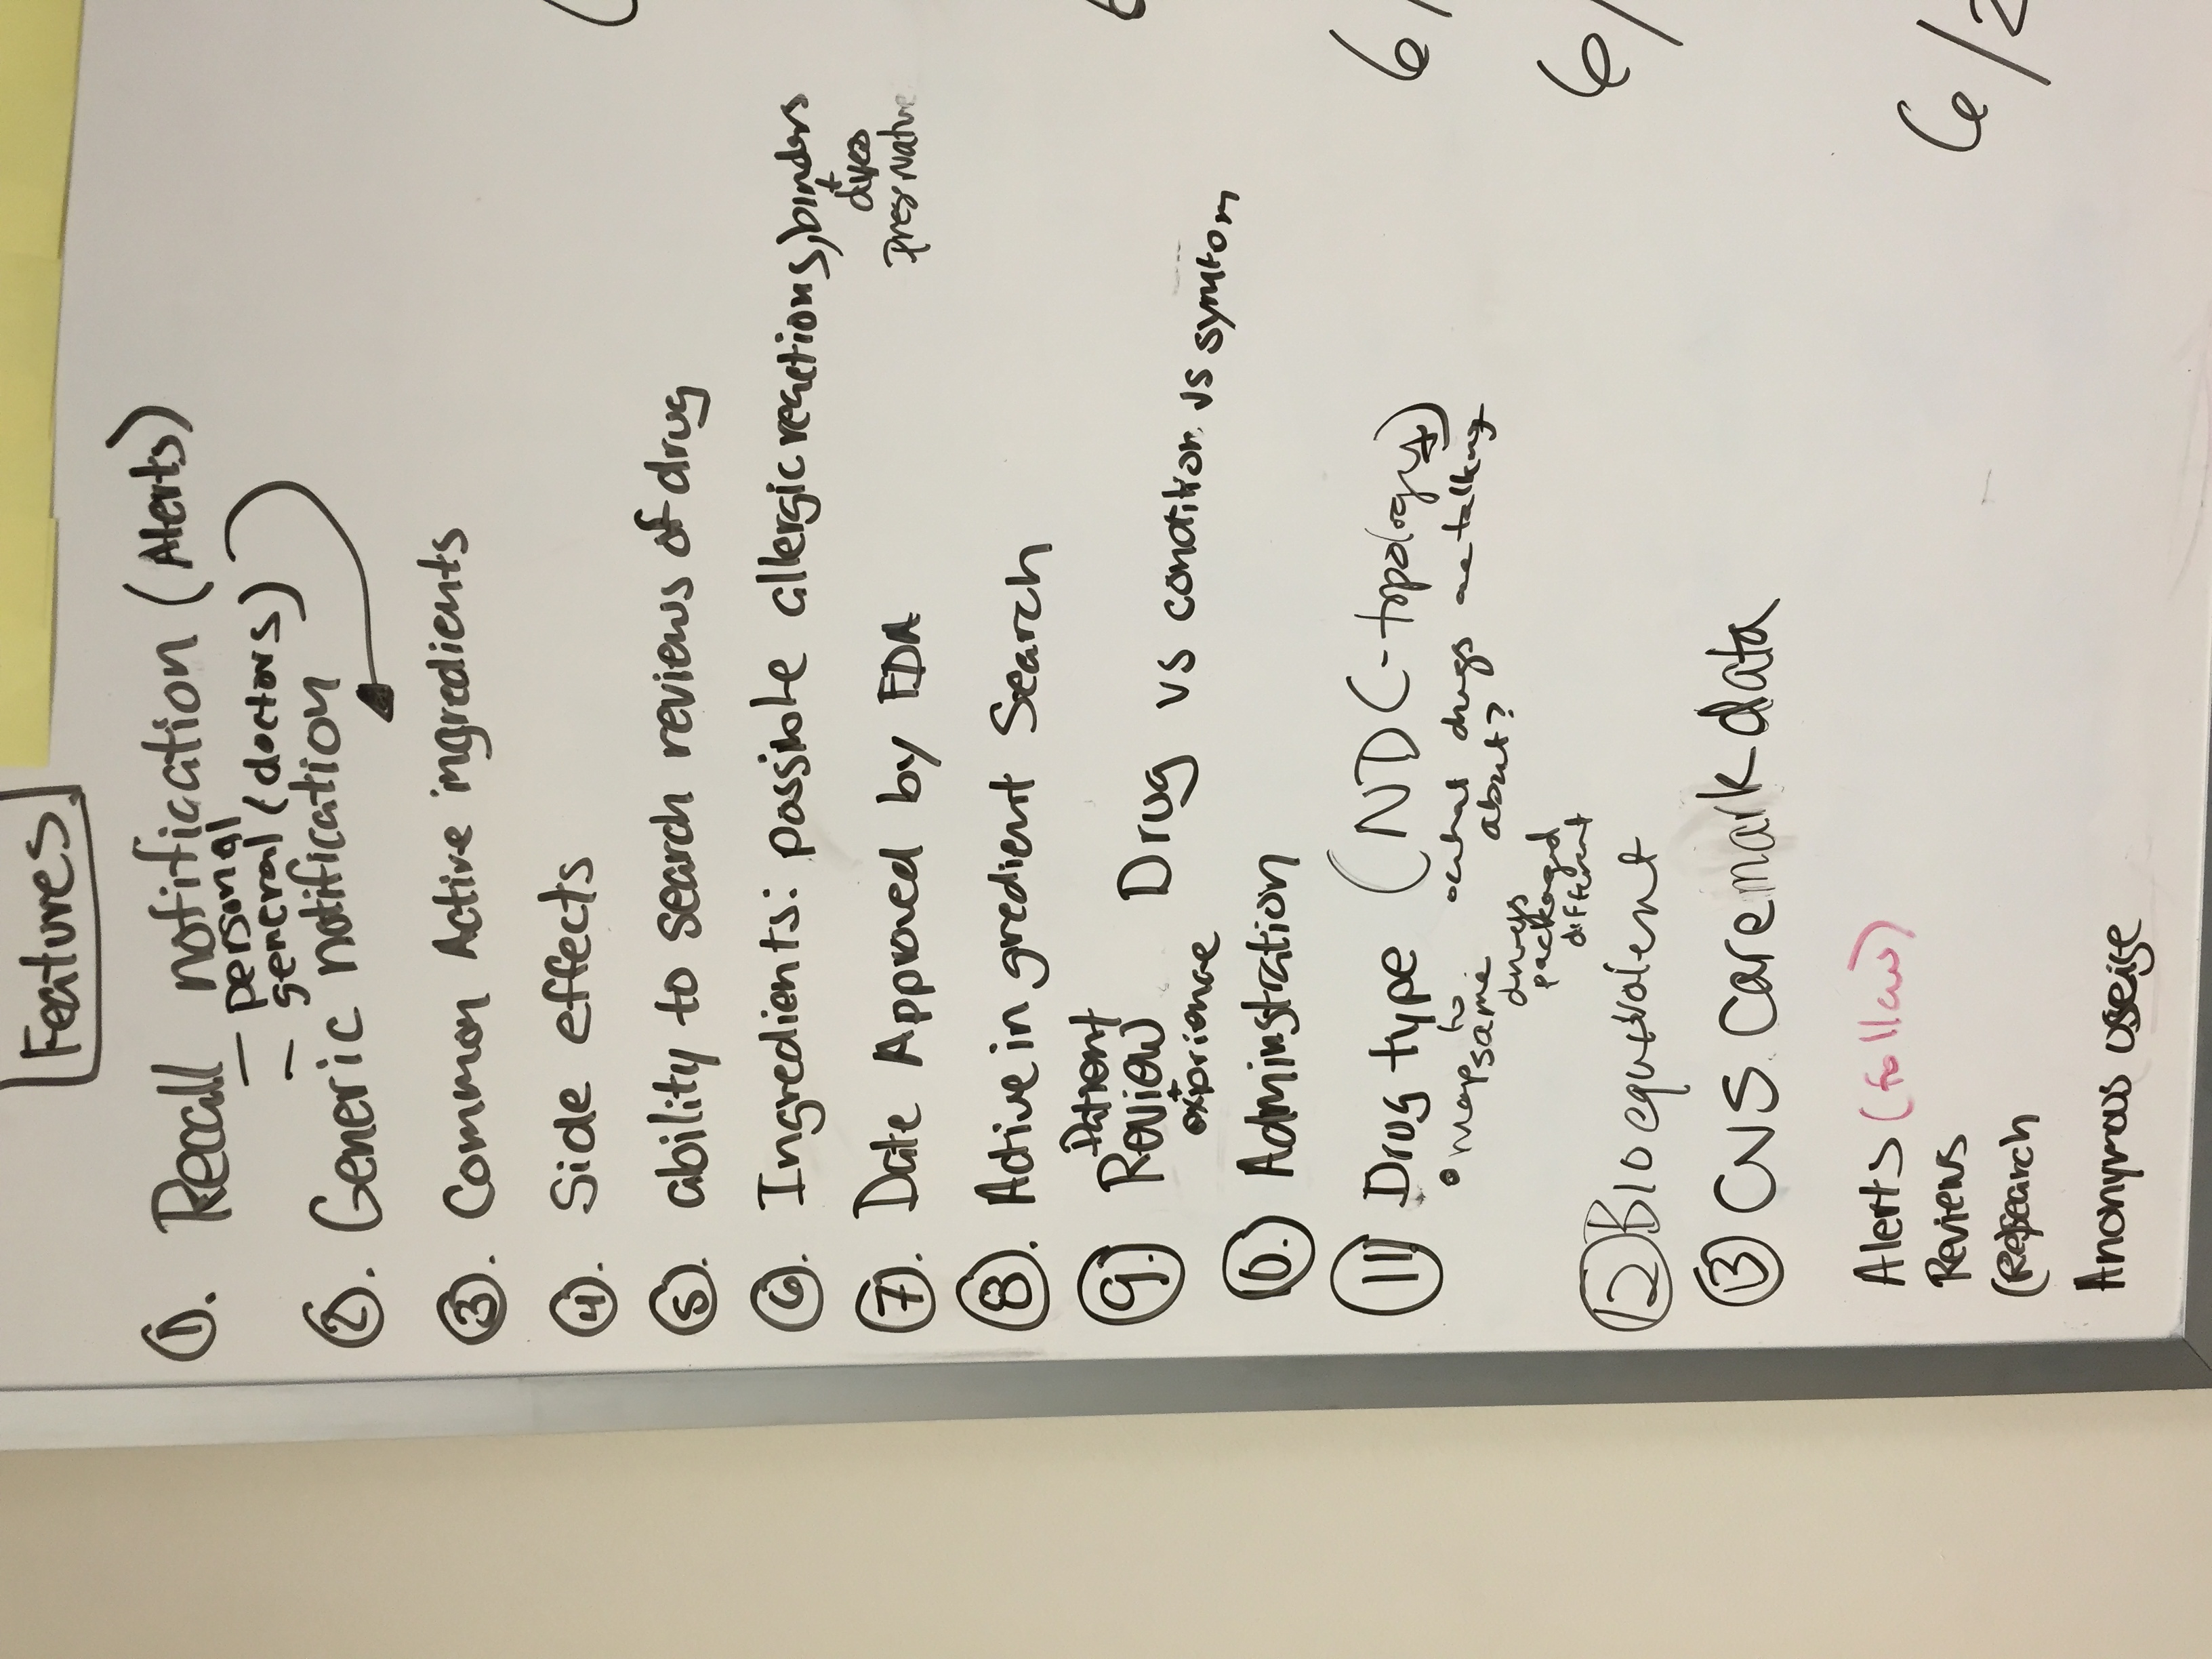 Features
1. Recall notification (Alerts)
- personal
- general (doctors)
2. Generic notification
3. Common Active ingredients
4. Side effects
5. ability to search reviews of drug
6. Ingredients: possible allergic reactions, binders
+
dyes
7. Date Approved by FDA
8. Active in gredient Search
Patient
9. Review Drug vs condition vs symtom
+
exprience
10. Adminstration
11 Drug type (NDC-topology)
• map to same drugs packaged different
• what drugs are talking about?
12 Bioequivalent
13 CVS Caremark data
Alerts (follow)
Reviews
(Re)search
Anonymous useige
6/
6/
6/2